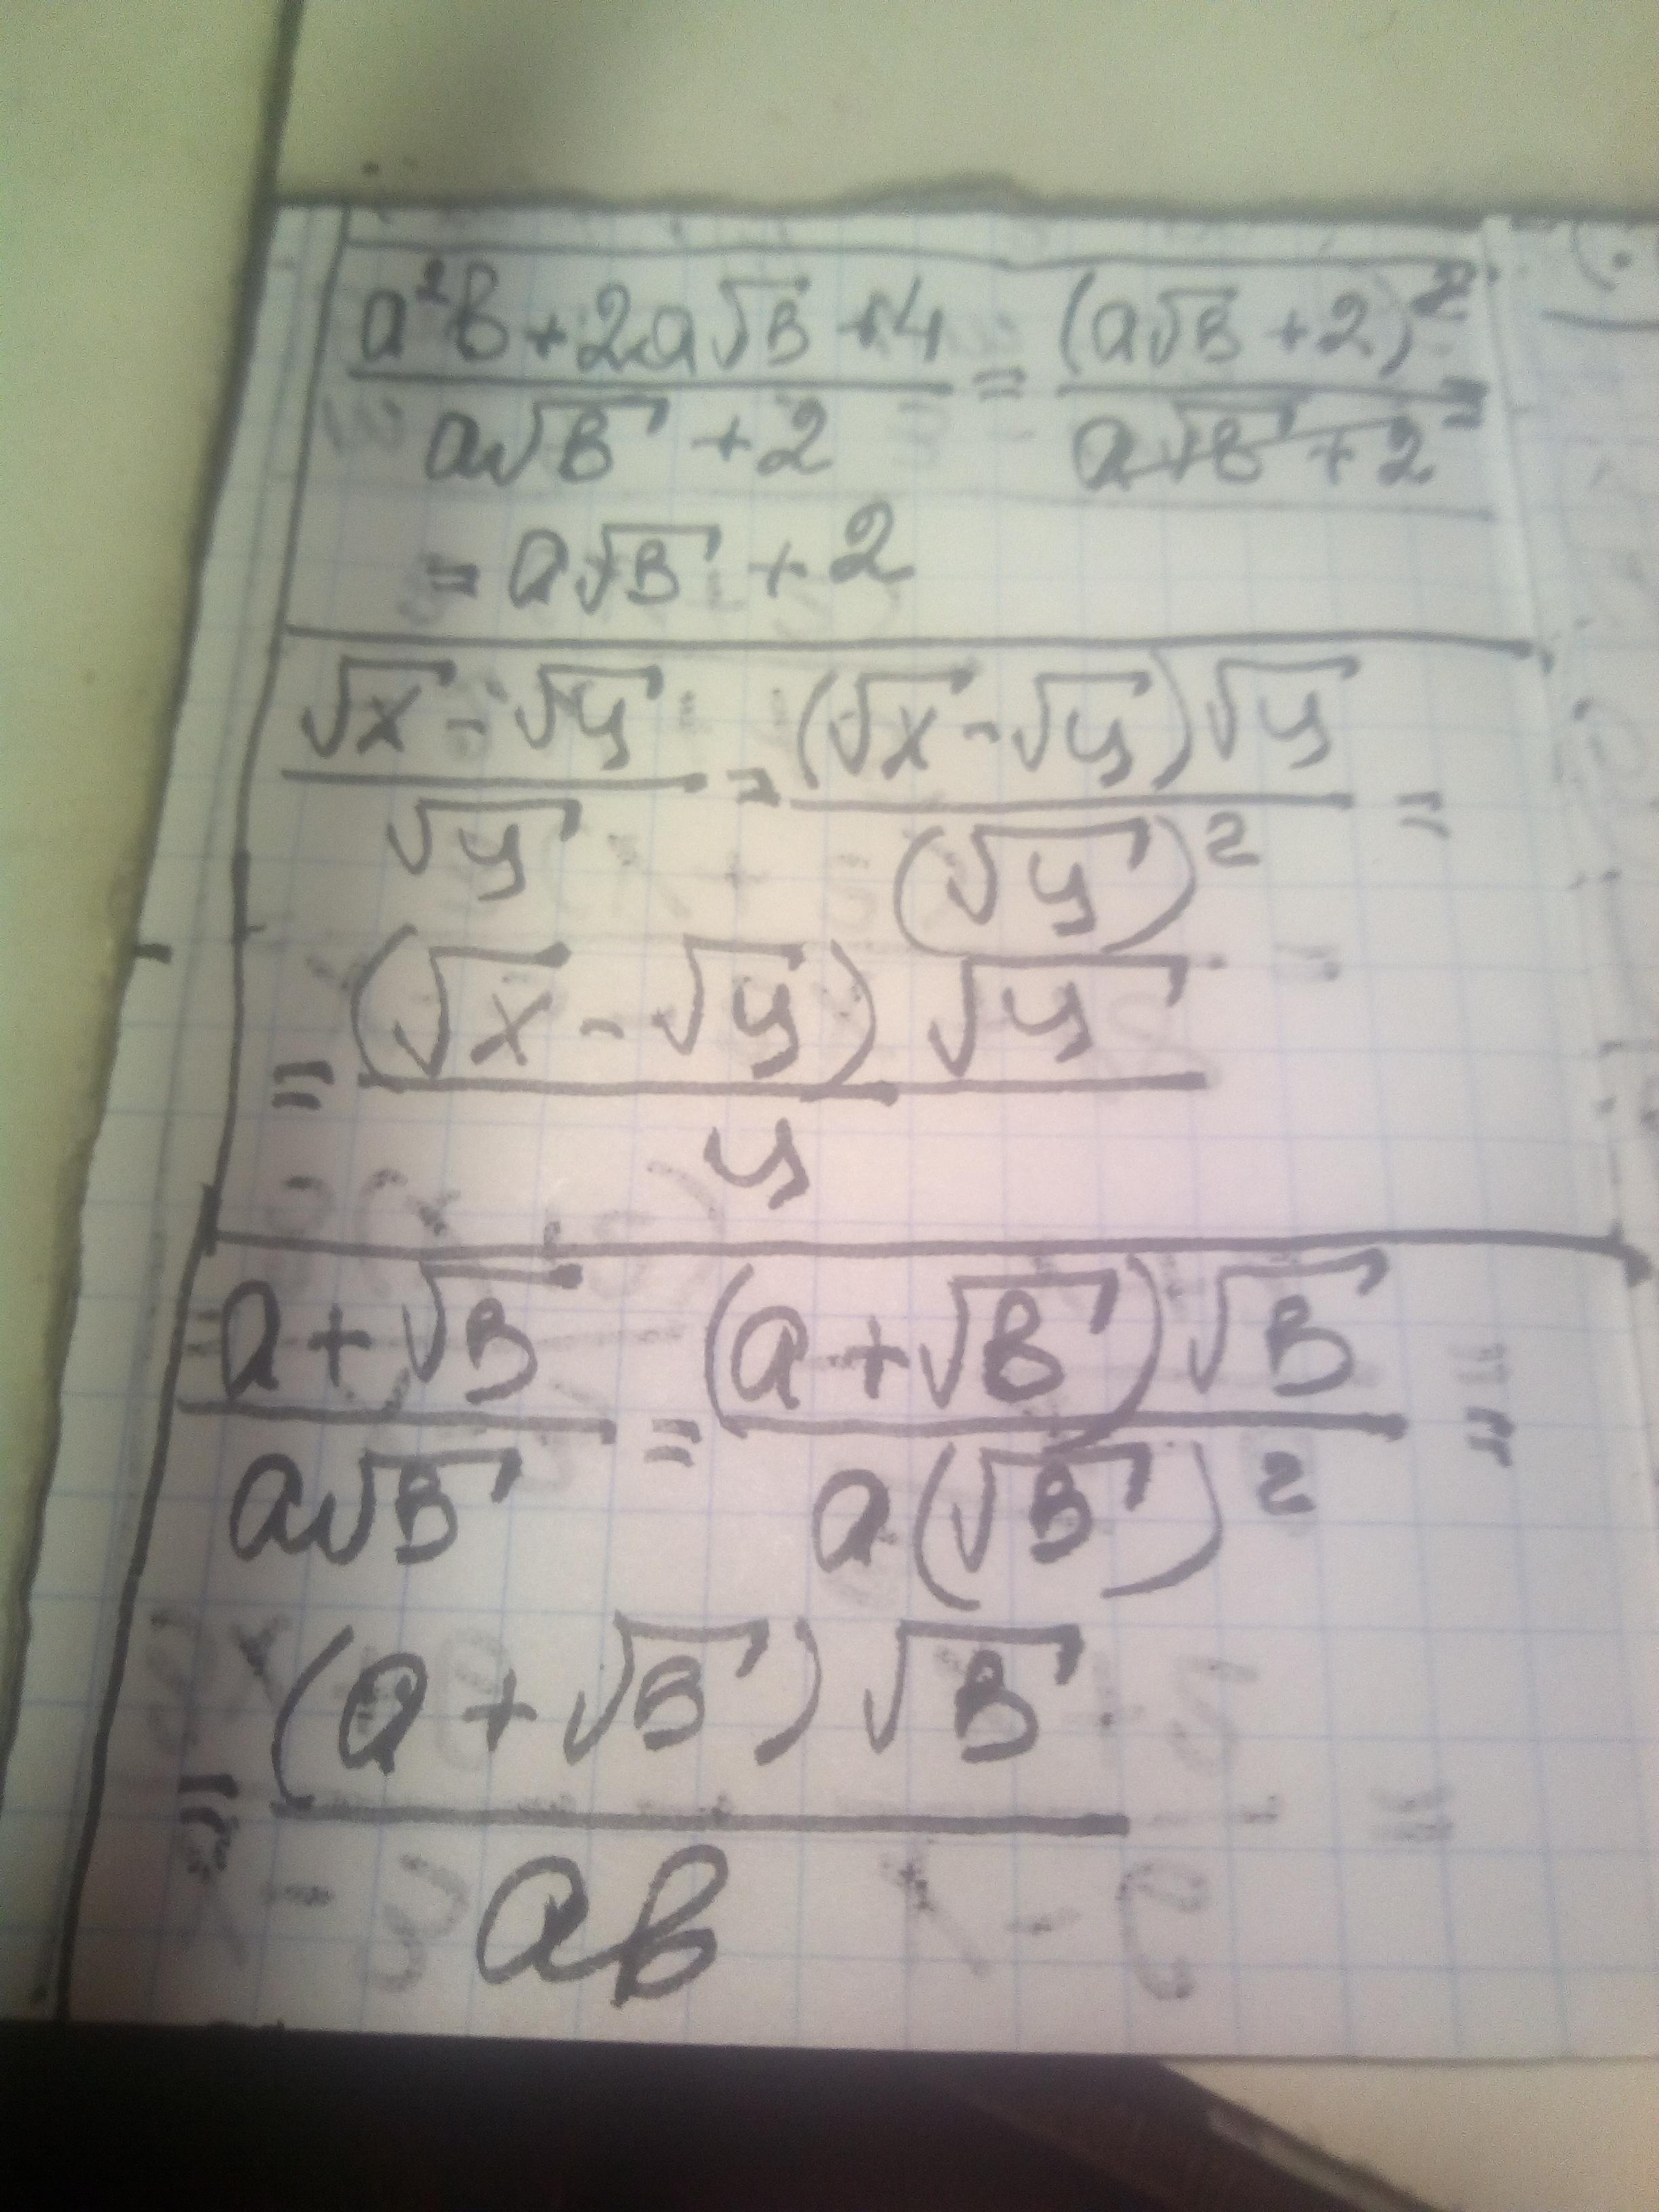 (a²b + 2a√b + 4)/(a√b + 2) = (a√b + 2)²/(a√b + 2) =
= a√b + 2
(√x - √y)/√y = ((√x - √y)√y)/(√y)² =
= ((√x - √y)√y)/y
(a + √b)/(a√b) = ((a + √b)√b)/(a(√b)²) =
= ((a + √b)√b)/(ab)